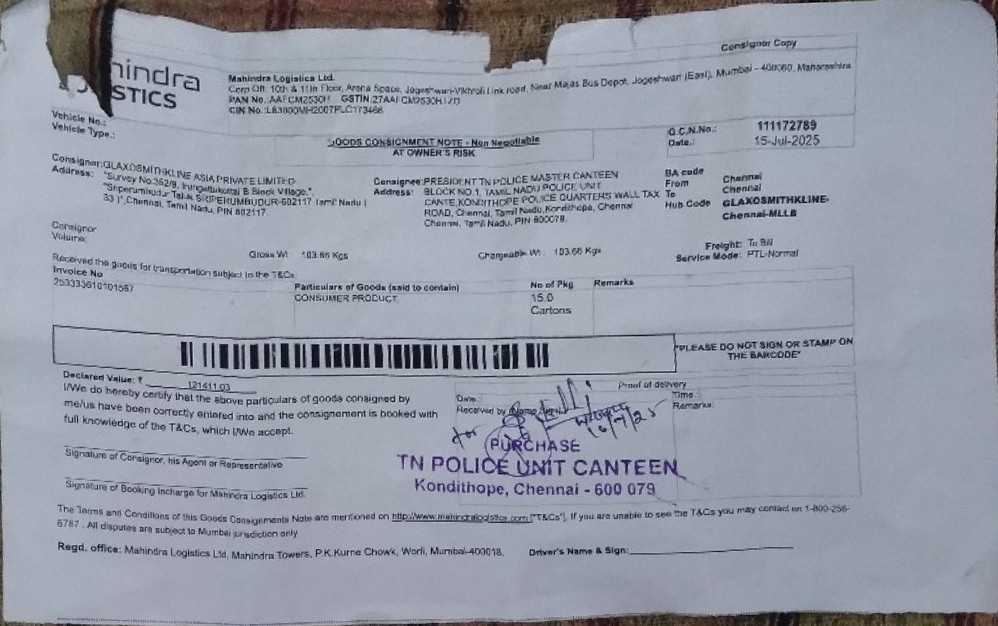 Consignor Copy
hindra
STICS
Mahindra Logistics Ltd.
Corp Off: 10th & 11th Floor, Arena Space, Jogeshwari-Vikhroli Link road, Near Majas Bus Depot, Jogeshwari (East), Mumbai - 400060, Maharashtra
PAN No.:AAFCM2530H GSTIN:
CIN No.:
Vehicle No.:
Vehicle Type.:
GOODS CONSIGNMENT NOTE - Non Negotiable
AT OWNER'S RISK
G.C.N.No.: 111172789
Date.: 15-Jul-2025
Consignor:GLAXOSMITHKLINE ASIA PRIVATE LIMITED
Address: "Survey No:352/9, Irungattukottai B Block Village,"
"Sriperumbudur Taluk SRIPERUMBUDUR-602117 Tamil Nadu (
33 )",Chennai, Tamil Nadu, PIN 602117.
Consignee:PRESIDENT TN POLICE MASTER CANTEEN
Address: BLOCK NO.1, TAMIL NADU POLICE UNIT
CANTE,KONDITHOPE POLICE QUARTERS WALL TAX
ROAD, Chennai, Tamil Nadu, Kondithope, Chennai
Chennai, Tamil Nadu, PIN 600079.
BA code Chennai
From Chennai
To GLAXOSMITHKLINE-
Hub Code Chennai-MLLB
Consignor
Volume:
Gross Wt : 103.66 Kgs
Chargeable Wt : 103.66 Kgs
Freight: To Bill
Service Mode: PTL-Normal
Received the goods for transportation subject to the T&Cs.
Invoice No
Particulars of Goods (said to contain)
No of Pkg
Remarks
253333610101567
CONSUMER PRODUCT
15.0
Cartons
"PLEASE DO NOT SIGN OR STAMP ON
THE BARCODE"
Declared Value: ₹ 121411.03
I/We do hereby certify that the above particulars of goods consigned by
me/us have been correctly entered into and the consignement is booked with
full knowledge of the T&Cs, which I/We accept.
Proof of delivery
Date :
Time :
Received by
Remarks:
for
16/7/25
PURCHASE
TN POLICE UNIT CANTEEN
Kondithope, Chennai - 600 079
Signature of Consignor, his Agent or Representative
Signature of Booking Incharge for Mahindra Logistics Ltd.
The Terms and Conditions of this Goods Consignments Note are mentioned on http://www.mahindralogistics.com ("T&Cs"). If you are unable to see the T&Cs you may contact on 1-800-258-
6787 . All disputes are subject to Mumbai jurisdiction only
Regd. office: Mahindra Logistics Ltd, Mahindra Towers, P.K.Kurne Chowk, Worli, Mumbai-400018.
Driver's Name & Sign: